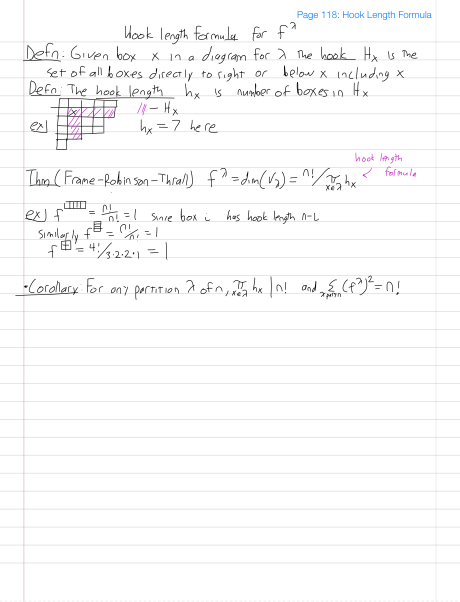 Page 118: Hook Length Formula
Hook length formula for f^λ
Defn: Given box x in a diagram for λ the hook H_x is the
set of all boxes directly to right or below x including x
Defn: The hook length h_x is number of boxes in H_x
x
/// - H_x
ex) h_x = 7 here
hook length
formula
Thm (Frame-Robinson-Thrall) f^λ = dim(V_λ) = n!/π_{x∈λ} h_x
ex) f = n!/n! = 1 since box i has hook length n-i
Similarly f = n!/n! = 1
f = 4!/3·2·2·1 = 1
• Corollary: For any partition λ of n, π_{x∈λ} h_x | n! and Σ_{λ part n} (f^λ)² = n!